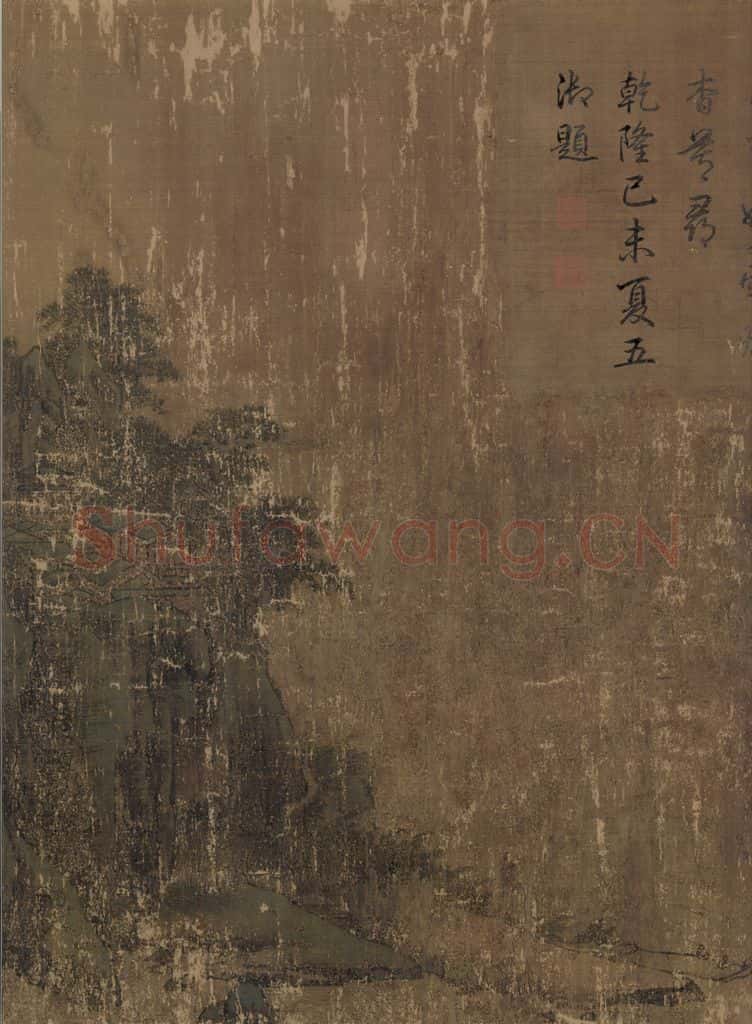 杳尋
乾隆己未夏五
御題
Shufawang.CN